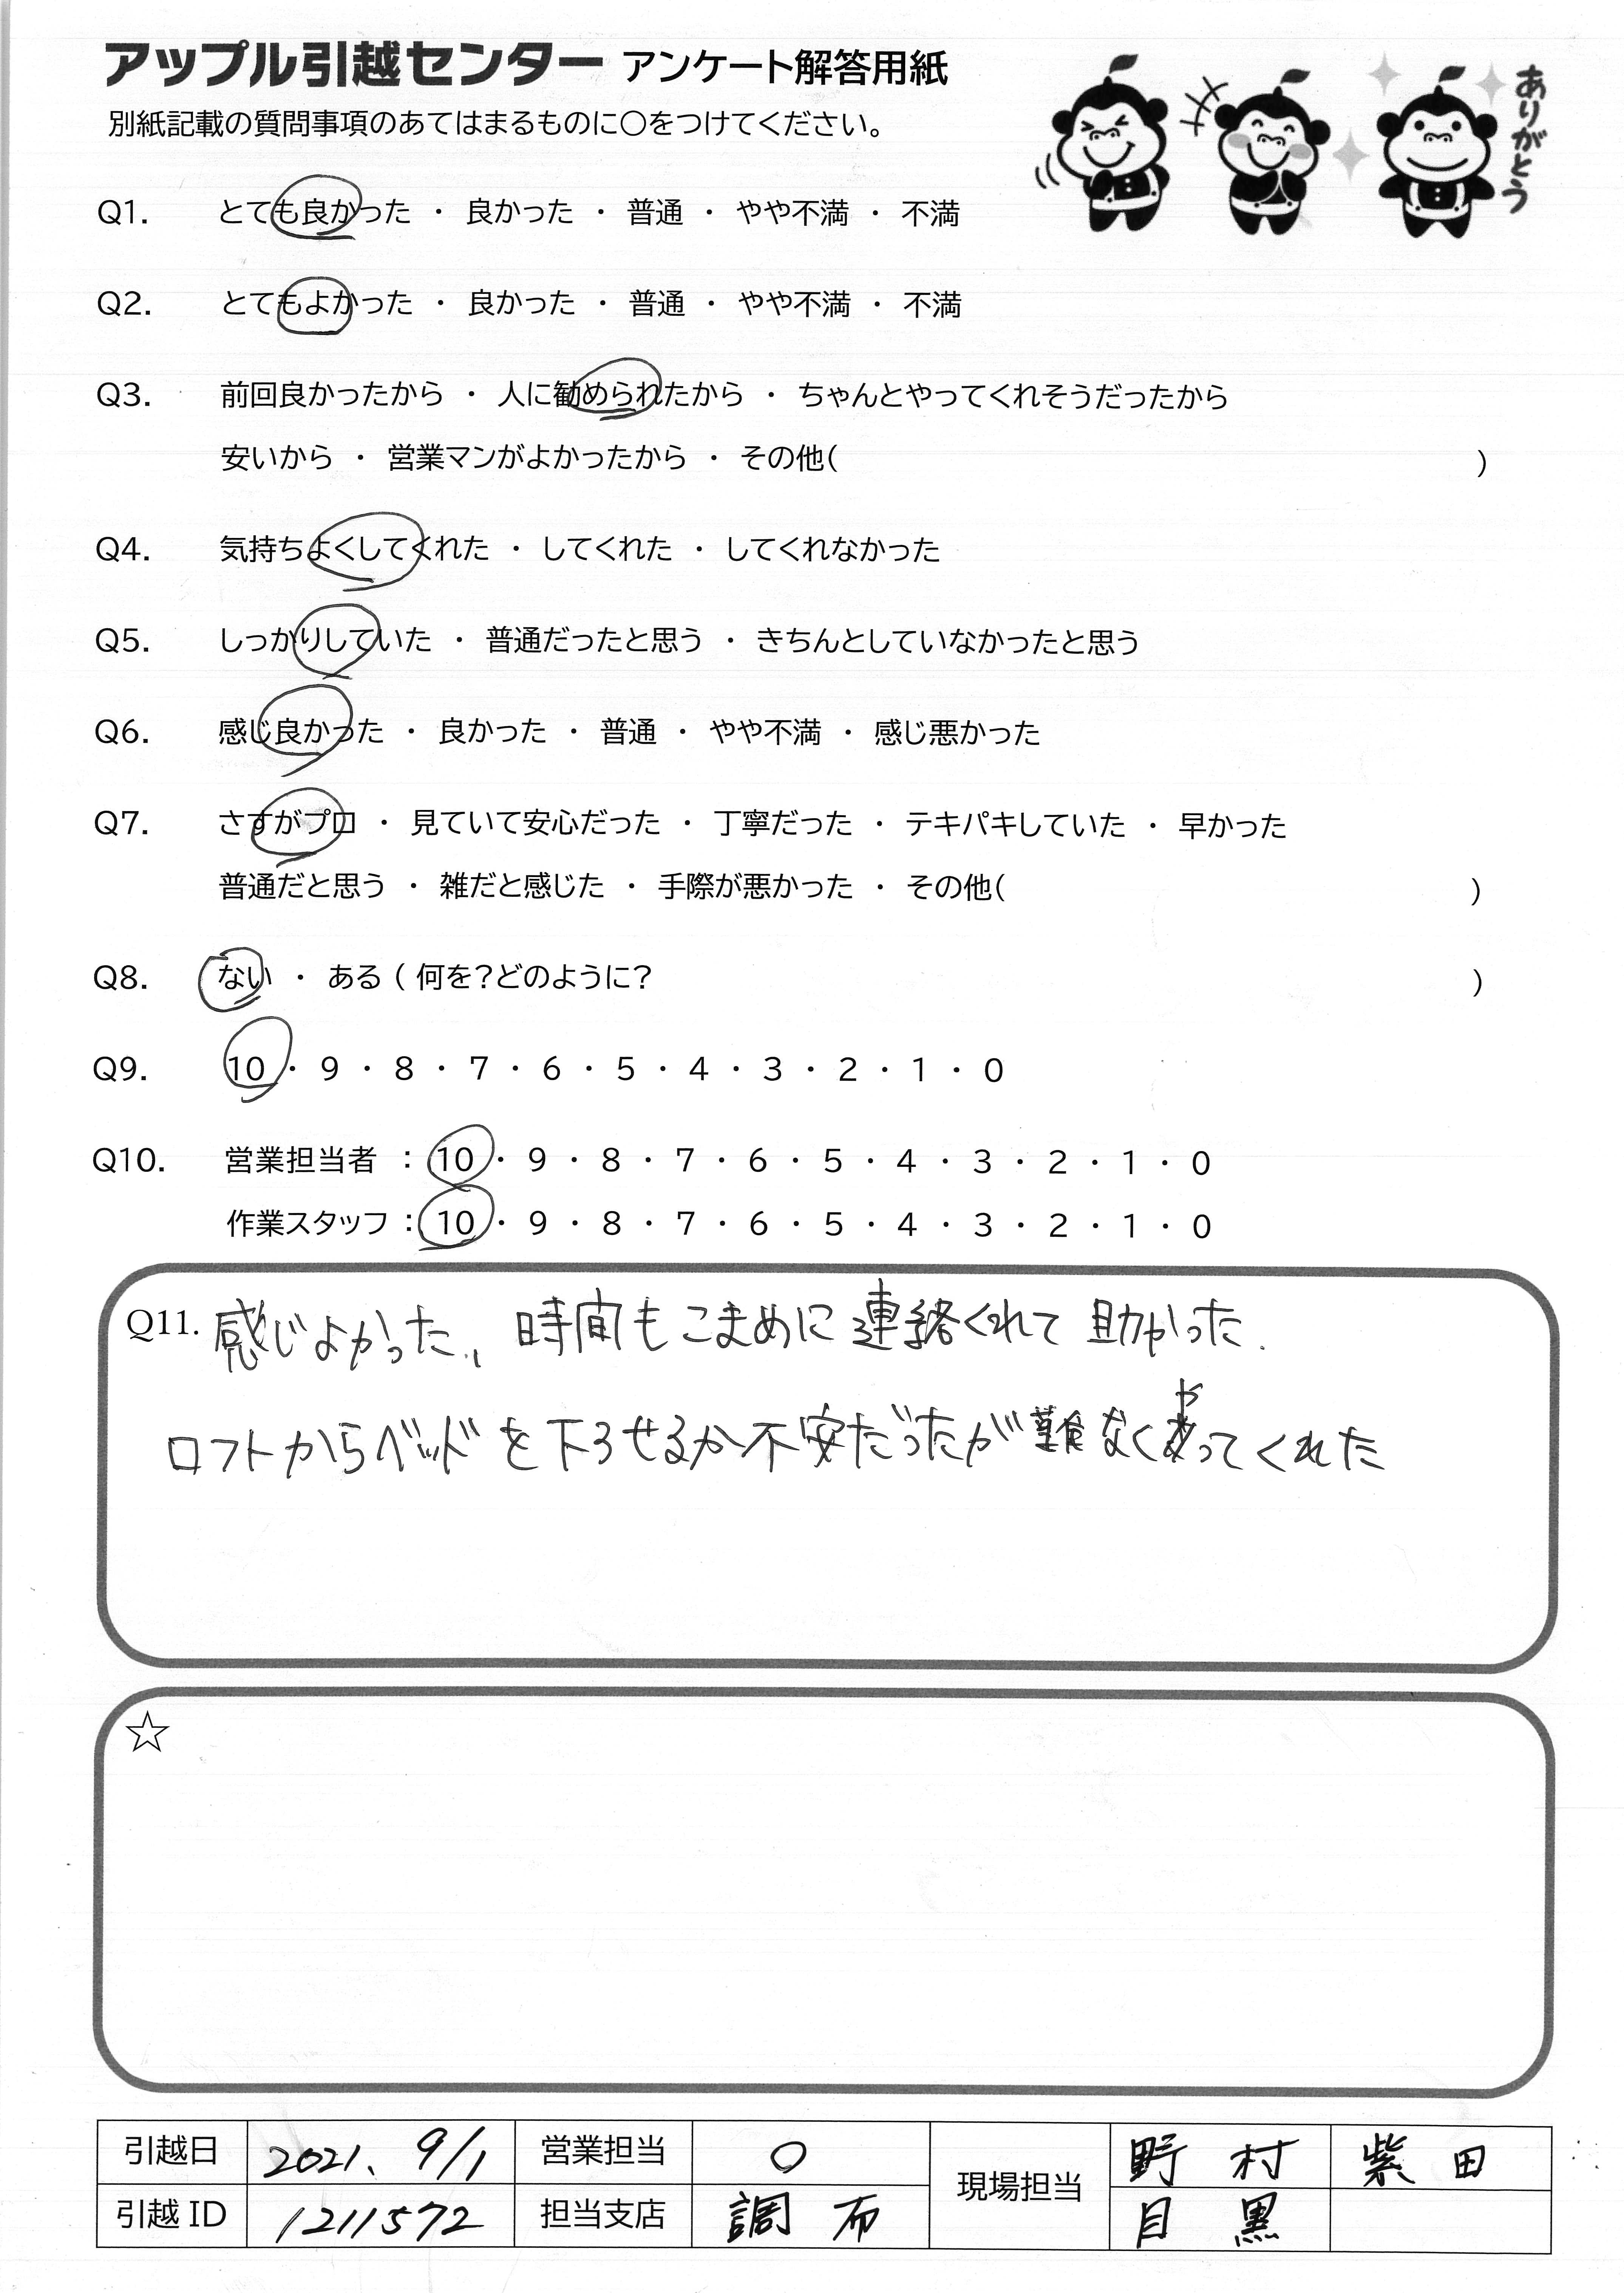 アップル引越センター アンケート解答用紙
別紙記載の質問事項のあてはまるものに○をつけてください。
ありがとう
Q1. とても良かった ・ 良かった ・ 普通 ・ やや不満 ・ 不満
Q2. とてもよかった ・ 良かった ・ 普通 ・ やや不満 ・ 不満
Q3. 前回良かったから ・ 人に勧められたから ・ ちゃんとやってくれそうだったから
安いから ・ 営業マンがよかったから ・ その他( )
Q4. 気持ちよくしてくれた ・ してくれた ・ してくれなかった
Q5. しっかりしていた ・ 普通だったと思う ・ きちんとしていなかったと思う
Q6. 感じ良かった ・ 良かった ・ 普通 ・ やや不満 ・ 感じ悪かった
Q7. さすがプロ ・ 見ていて安心だった ・ 丁寧だった ・ テキパキしていた ・ 早かった
普通だと思う ・ 雑だと感じた ・ 手際が悪かった ・ その他( )
Q8. ない ・ ある ( 何を?どのように? )
Q9. 10 ・ 9 ・ 8 ・ 7 ・ 6 ・ 5 ・ 4 ・ 3 ・ 2 ・ 1 ・ 0
Q10. 営業担当者 : 10 ・ 9 ・ 8 ・ 7 ・ 6 ・ 5 ・ 4 ・ 3 ・ 2 ・ 1 ・ 0
作業スタッフ : 10 ・ 9 ・ 8 ・ 7 ・ 6 ・ 5 ・ 4 ・ 3 ・ 2 ・ 1 ・ 0
Q11. 感じよかった、時間もこまめに連絡くれて助かった.
ロフトからベッドを下ろせるか不安だったが難なくやってくれた
☆
引越日 2021、9/1 営業担当 ○ 現場担当 野村 紫田
引越ID 1211572 担当支店 調布 目黒